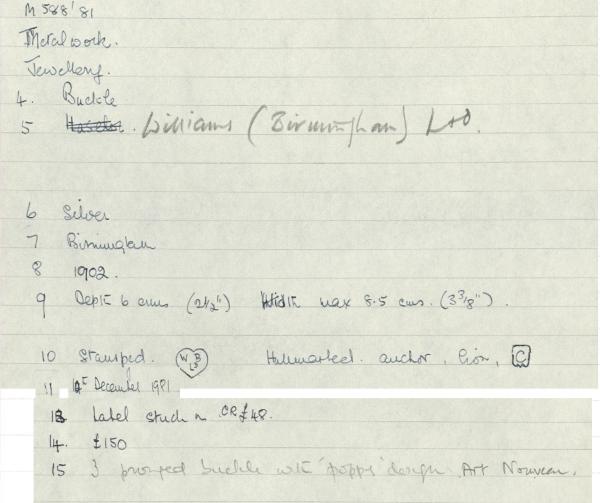 M 588'81
Metalwork.
Jewellery.
4. Buckle
5 Haseler. Williams (Birmingham) Ltd.
6 Silver
7 Birmingham
8 1902.
9 Depth 6 cms (2½") Width max 8.5 cms. (3⅜").
10 Stamped. W B Ld Hallmarked. anchor, lion, C
11 1st December 1981
13 Label stuck on £48.
14. £150
15 3 pronged buckle with 'poppy' design. Art Nouveau.